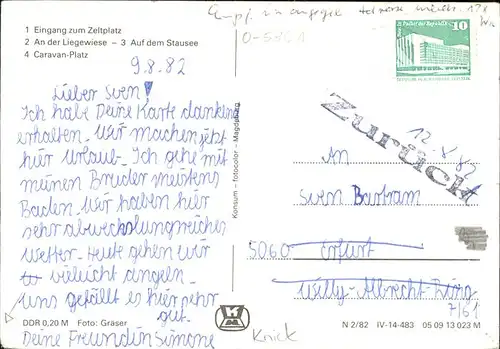 1 Eingang zum Zeltplatz
2 An der Liegewiese – 3 Auf dem Stausee
4 Caravan-Platz
9.8.82
Lieber Sven!
Ich habe Deine Karte dankend
erhalten. Wir machen jetzt
hier Urlaub. Ich gehe mit
meinen Bruder meistens
Baden. Wir haben hier
sehr abwechslungsreiches
Wetter. Heute gehen wir
vieleicht angeln.
Uns gefällt es hier sehr
gut.
Deine Freundin Simone
DDR 0,20 M Foto: Gräser
Konsum – fotocolor – Magdeburg
10
Zurück
12.8.82
An
Sven Bartram
5060 Erfurt
Willy-Albrecht-Ring
7/61
N 2/82 IV-14-483 05 09 13 023 M
Knick